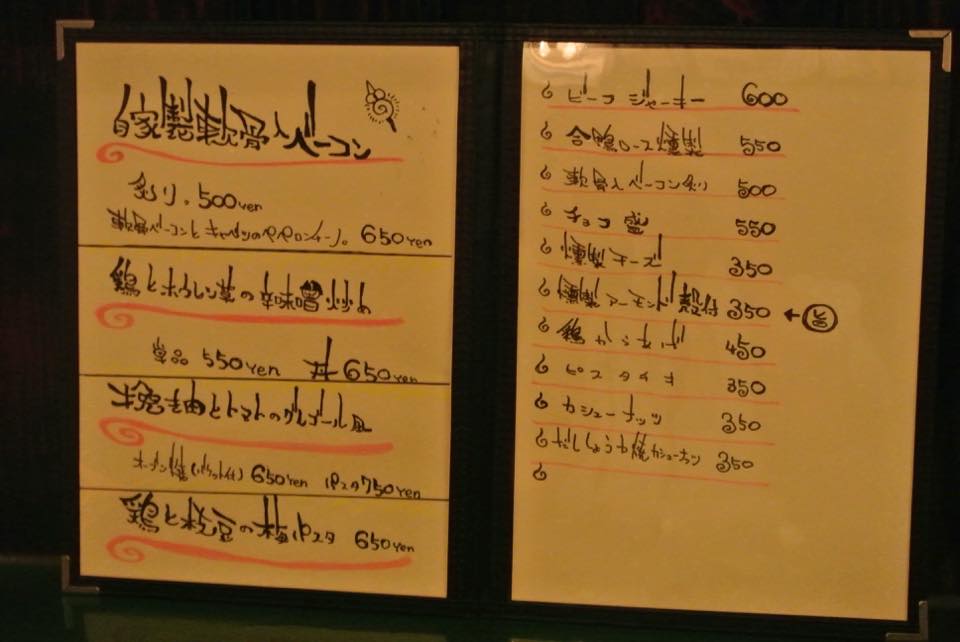 自家製軟骨入ベーコン
炙り。500yen
軟骨ベーコンとキャベツのペペロンチーノ。 650yen
鶏とホウレン草の辛味噌炒め
単品 550yen 丼 650yen
とトマトのグルゴール風
オーブン焼(バケット付) 650yen パスタ750yen
鶏と枝豆の梅パスタ 650yen
ビーフジャーキー 600
合鴨ロース燻製 550
軟骨入ベーコン炙り 500
チョコ盛 550
燻製チーズ 350
燻製アーモンド殻付 350 ← 旨
鶏からあげ 450
ピスタチオ 350
カシューナッツ 350
だししょうゆ焼カシューナッツ 350